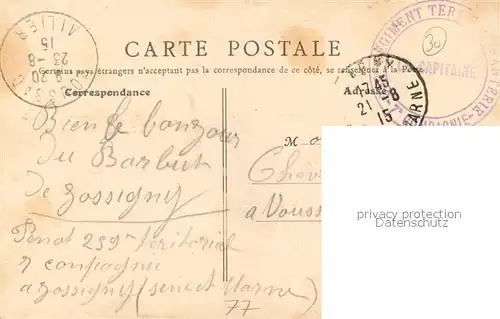 CARTE POSTALE
Certains pays étrangers n'acceptant pas la correspondance de ce côté, se renseigner à la Poste
Correspondance
Adresse
ALLIER
9 30
23-8
15
21
15
MARNE
CAPITAINE
30
M
Bien le bonjour
du Barbut
de Zossigny
Penot 259me teritorial
7 compagnie
a Zossigny (seine et Marne)
77
a Vouss
privacy protection
Datenschutz